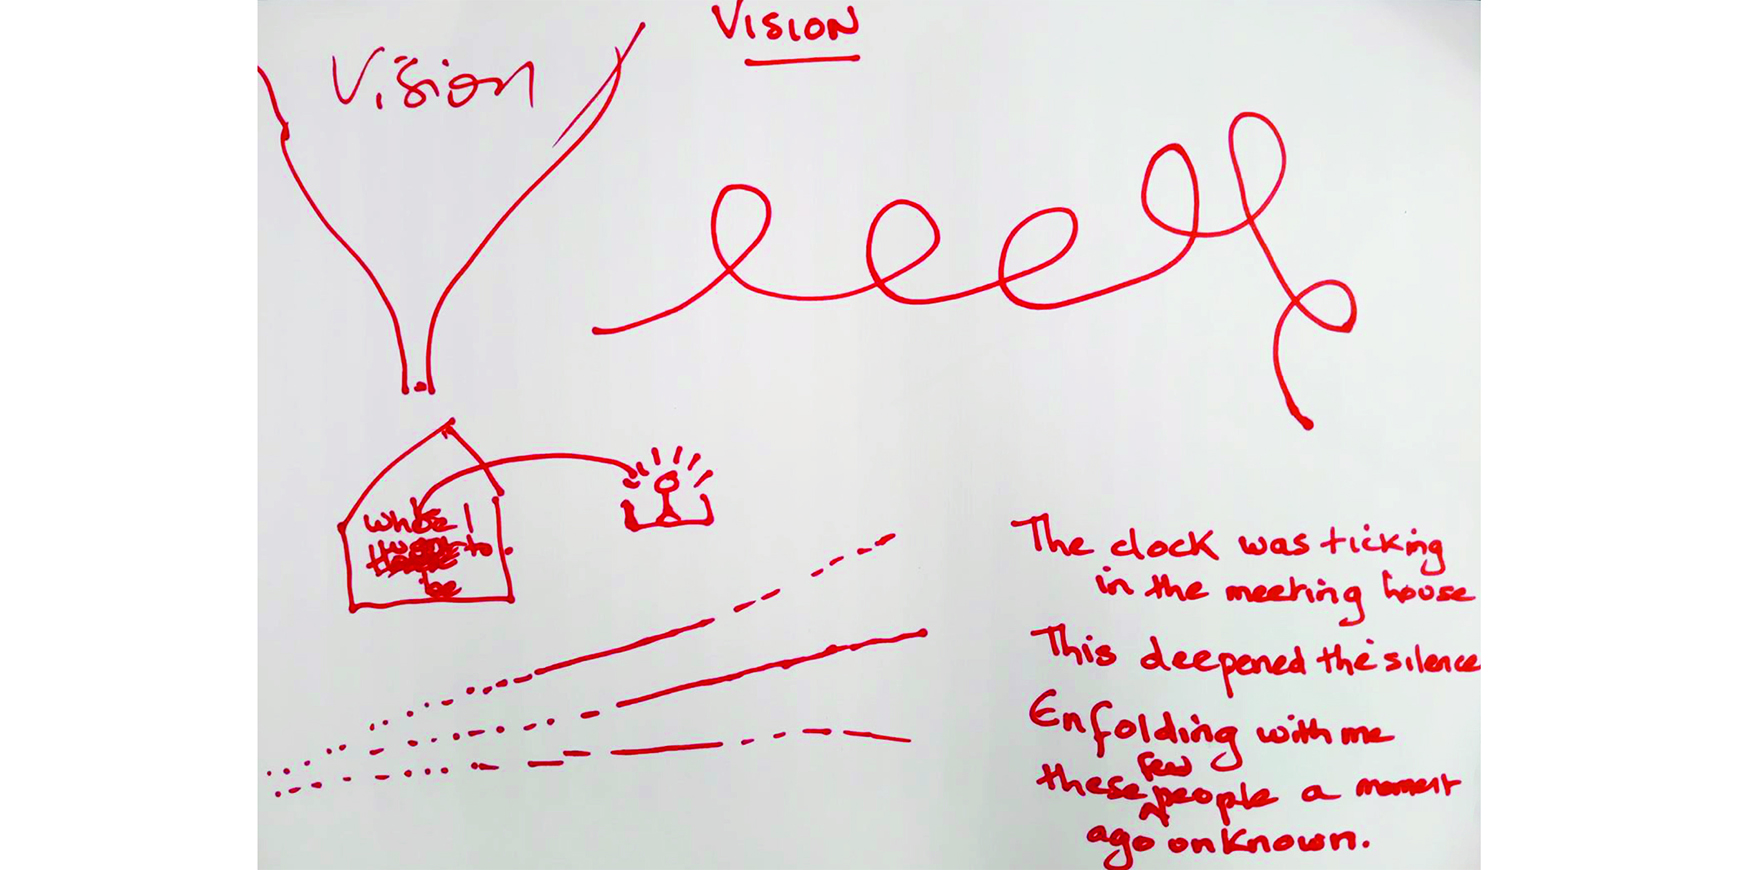 Vision
VISION
where I
want to
be
The clock was ticking
in the meeting house
This deepened the silence
Enfolding with me
these few people a moment
ago unknown.